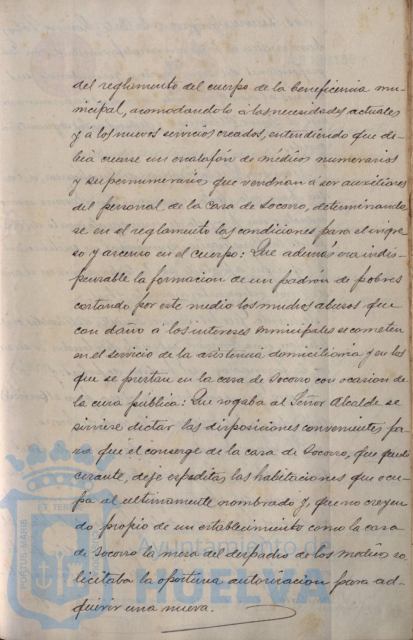 del reglamento del cuerpo de la beneficencia mu-
nicipal, acomodandolo á las necesidades actuales
y á los nuevos servicios creados, entendiendo que de-
bia crearse un escalafón de médicos numerarios
y supernumerarios que vendrian á ser auxiliares
del personal de la casa de Socorro, determinando-
se en el reglamento las condiciones para el ingre-
so y ascenso en el cuerpo: Que además era indis-
pensable la formacion de un padron de pobres
cortando por este medio los muchos abusos que
con daño á los intereses municipales se cometen
en el servicio de la asistencia domiciliaria y en los
que se prestan en la casa de Socorro con ocasion de
la cura pública: Que rogaba al Señor Alcalde se
sirviese dictar las disposiciones convenientes pa-
ra que el conserge de la casa de Socorro, que quedó
cesante, deje espeditas las habitaciones que ocu-
pa al ultimamente nombrado y, que no creyen-
do propio de un establecimiento como la casa
de Socorro la mesa del despacho de los medicos so-
licitaba la oportuna autorizacion para ad-
quirir una nueva.
Ayuntamiento de
HUELVA
PORTUS MARIS